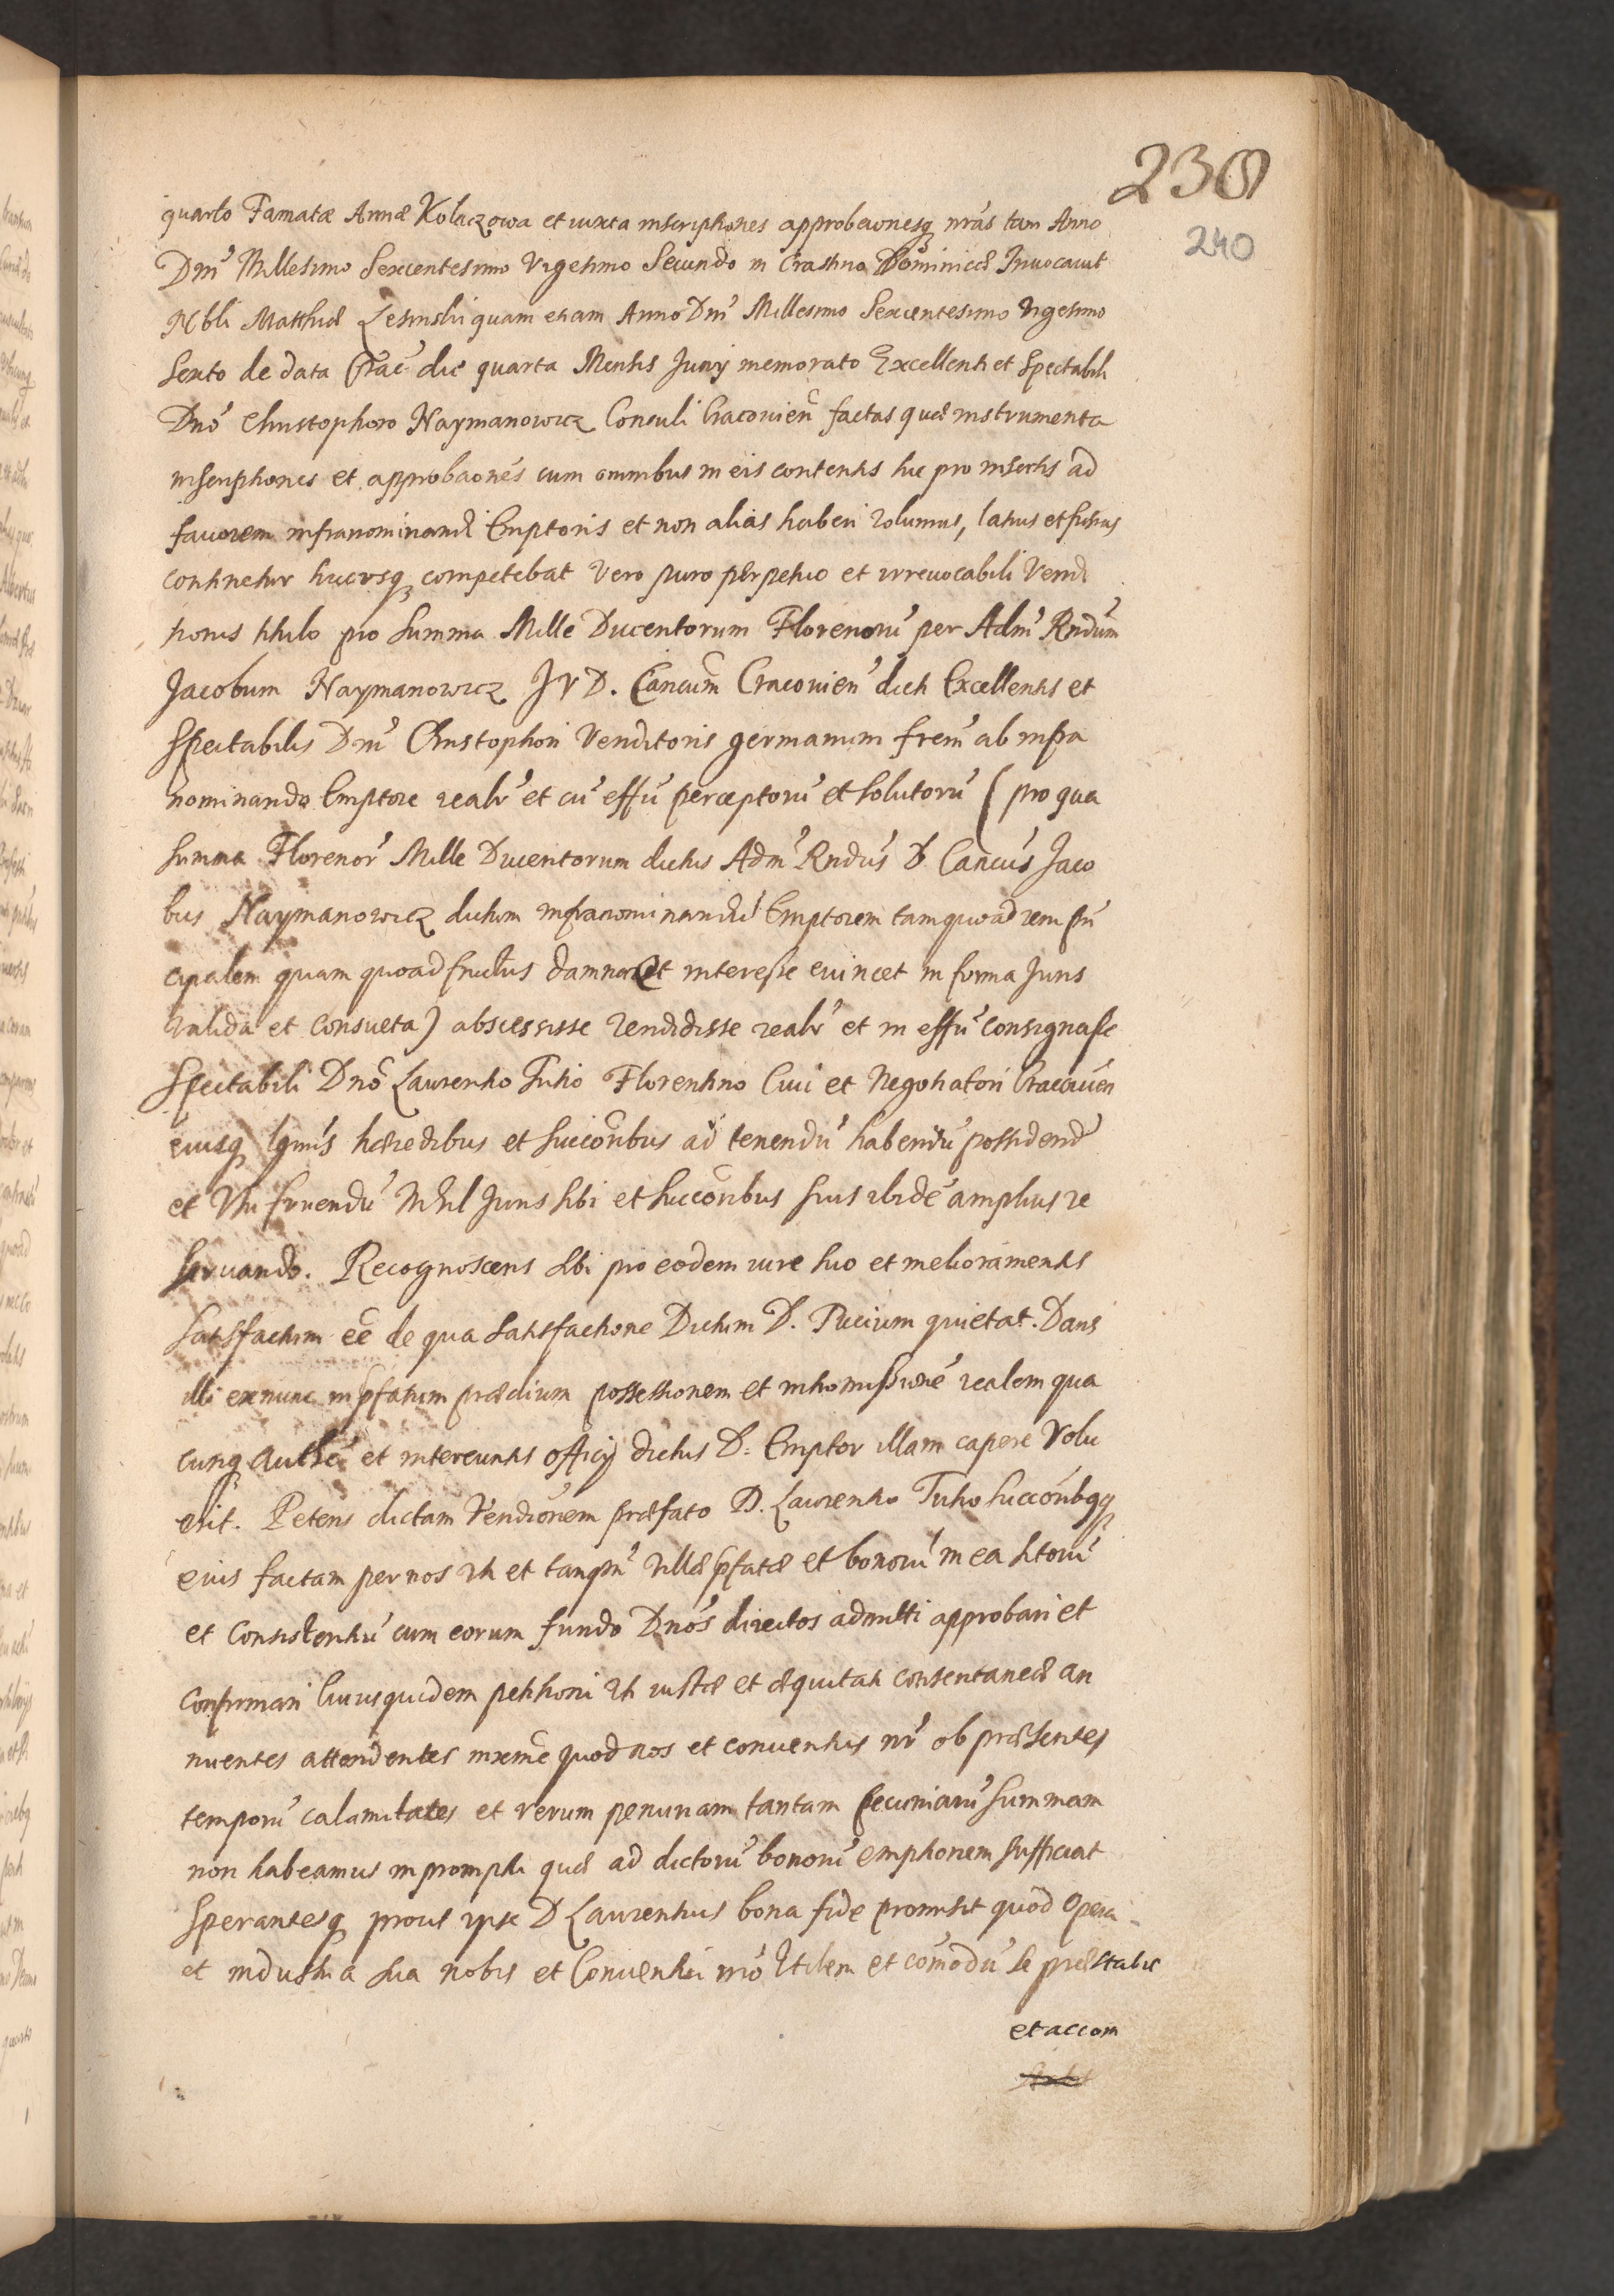 238
240
quarto Famatæ Annæ Kolaczowa et iuxta inscriptiones approbãonesq nrãs tam Anno
Dnĩ Millesimo Sexcentesimo Vigesimo Secundo in Crastino Dominicæ Inuocauit
Nbli Matthiæ Lesinski quam etiam Anno Dnĩ Millesimo Sexcentesimo Vigesimo
Sexto de data Crac̃ die quarta Mensis Junij memorato Excellenti et Spectabili
Dnõ Christophoro Naymanowicz Consuli Cracovien̄ factas quæ instrumenta
inscriptiones et approbaones cum omnibus in eis contentis hic pro insertis ad
fauorem infranominandi Emptoris et non alias haberi volumus, latius et fusius
continetur hucusq competebat vero puro perpetuo et irreuocabili Vendi
tionis titulo pro Summa Mille Ducentorum Florenorũ per Adm̃ Rndũm
Jacobum Naymanowicz JVD. Canc̃um Cracovien̄ dicti Excellentis et
Spectabilis Dnĩ Christophori Venditoris germanum frem̃ ab infra
nominando Emptore realr̃ et cũ effũ perceptorũ et solutorũ ( pro qua
summa Florenor̃ Mille Ducentorum dictus Adm̃ Rndũs D Cancũs Jaco
bus Naymanowicz dictum infranominandũ Emptorem tam quoad rem prin
cipalem quam quoad fructus damna et interesse euincet in forma Juris
valida et consueta) abscessisse vendidisse realr̃ et in effũ consignasse
Spectabili Dnõ Laurentio Tutio Florentino Ciui et Negotiatori Cracouien
eiusq lgmĩs hæredibus et succõribus ad tenendũ habendũ possidendũ
et Vti fruendũ Nihil Juris sibi et succõribus suis ibidẽ amplius re
seruando. Recognoscens sibi pro eodem iure suo et melioramentis
satisfactum eẽ de qua satisfactione Dictum D. Tucium quietat. Dans
illi exnunc in pfatum prædium possessionem et intromissionẽ realem qua
cunq authẽ et interuentis officij dictus D. Emptor illam capere Volu
erit. Petens dictam Vendiõnem præfato D. Laurentio Tutio succõribqq
eius factam per nos vti et tanqm̃ villæ pfatæ et bonorũ in ea sitorũ
et Consistentiũ cum eorum fundo Dnõs directos admitti approbari et
confirmari Cuiusquidem petitioni vti iustæ et æquitati consentaneæ an
nuentes attendentes mxime quod nos et conuentus nr̃ ob præsentes
temporũ calamitates et rerum penuriam tantam pecuniarũ summam
non habeamus in promptu quæ ad dictorũ bonorũ emptionem sufficiat
Sperantesq prout ipse D Laurentius bona fide promisit quod opera
et industria sua nobis et Conuentui nrõ Vtilem et cõmodũ se præstabit
et accom